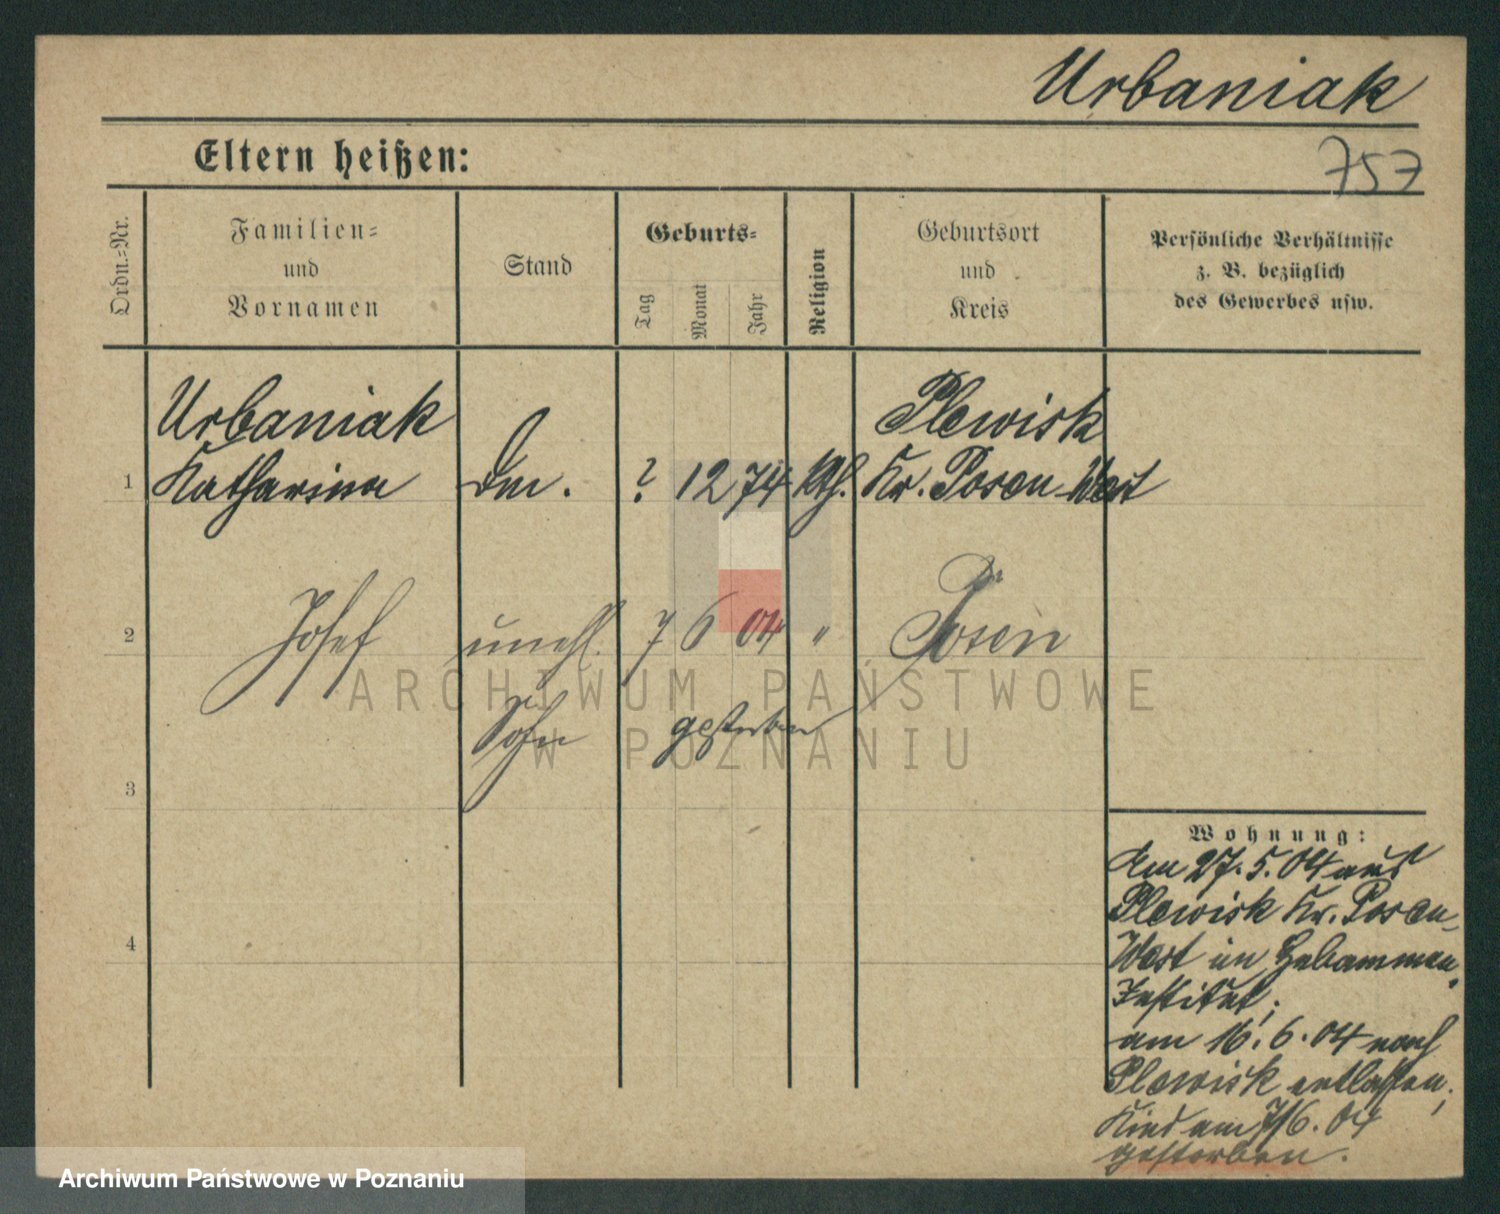 Urbaniak
Eltern heißen:
757
Ordn.-Nr.
Familien-
und
Vornamen
Stand
Geburts-
Tag
Monat
Jahr
Religion
Geburtsort
und
Kreis
Persönliche Verhältnisse
z. B. bezüglich
des Gewerbes usw.
Urbaniak
Plewisk
1 Katharina ? 12 74 Kth. Kr. Posen-West
2 Josef unehl. 7 6 04 " Posen
Sohn gestorben
3
4
Wohnung:
Am 27.5.04 aus
Plewisk Kr. Posen-
West im Hebammen-
Institut;
am 16.6.04 nach
Plewisk entlassen;
Kind am 7/6.04
gestorben.
ARCHIWUM PAŃSTWOWE
W POZNANIU
Archiwum Państwowe w Poznaniu